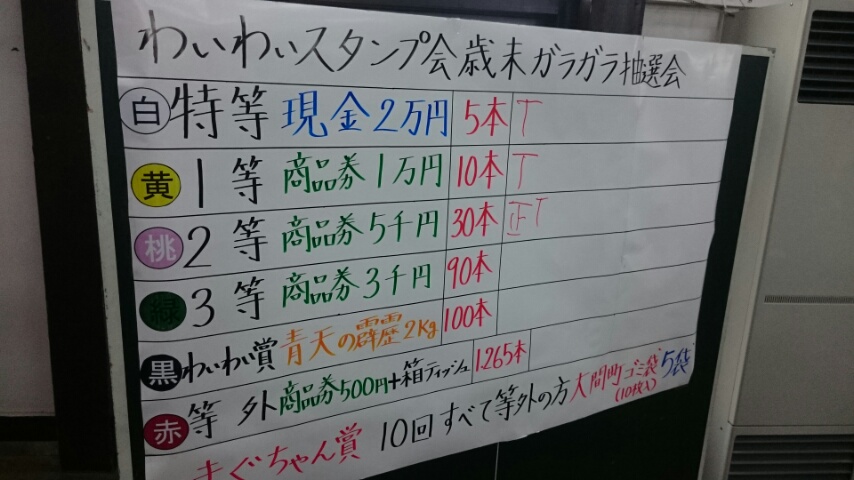 わいわいスタンプ会歳末ガラガラ抽選会
白 特等 現金2万円 5本 T
黄 1等 商品券1万円 10本 T
桃 2等 商品券5千円 30本 正T
緑 3等 商品券3千円 90本
黒 わいわい賞 青天の霹靂2Kg 100本
赤 等外 商品券500円+箱ティッシュ 1265本
まぐちゃん賞 10回すべて等外の方 大間町ゴミ袋(10枚入) 5袋